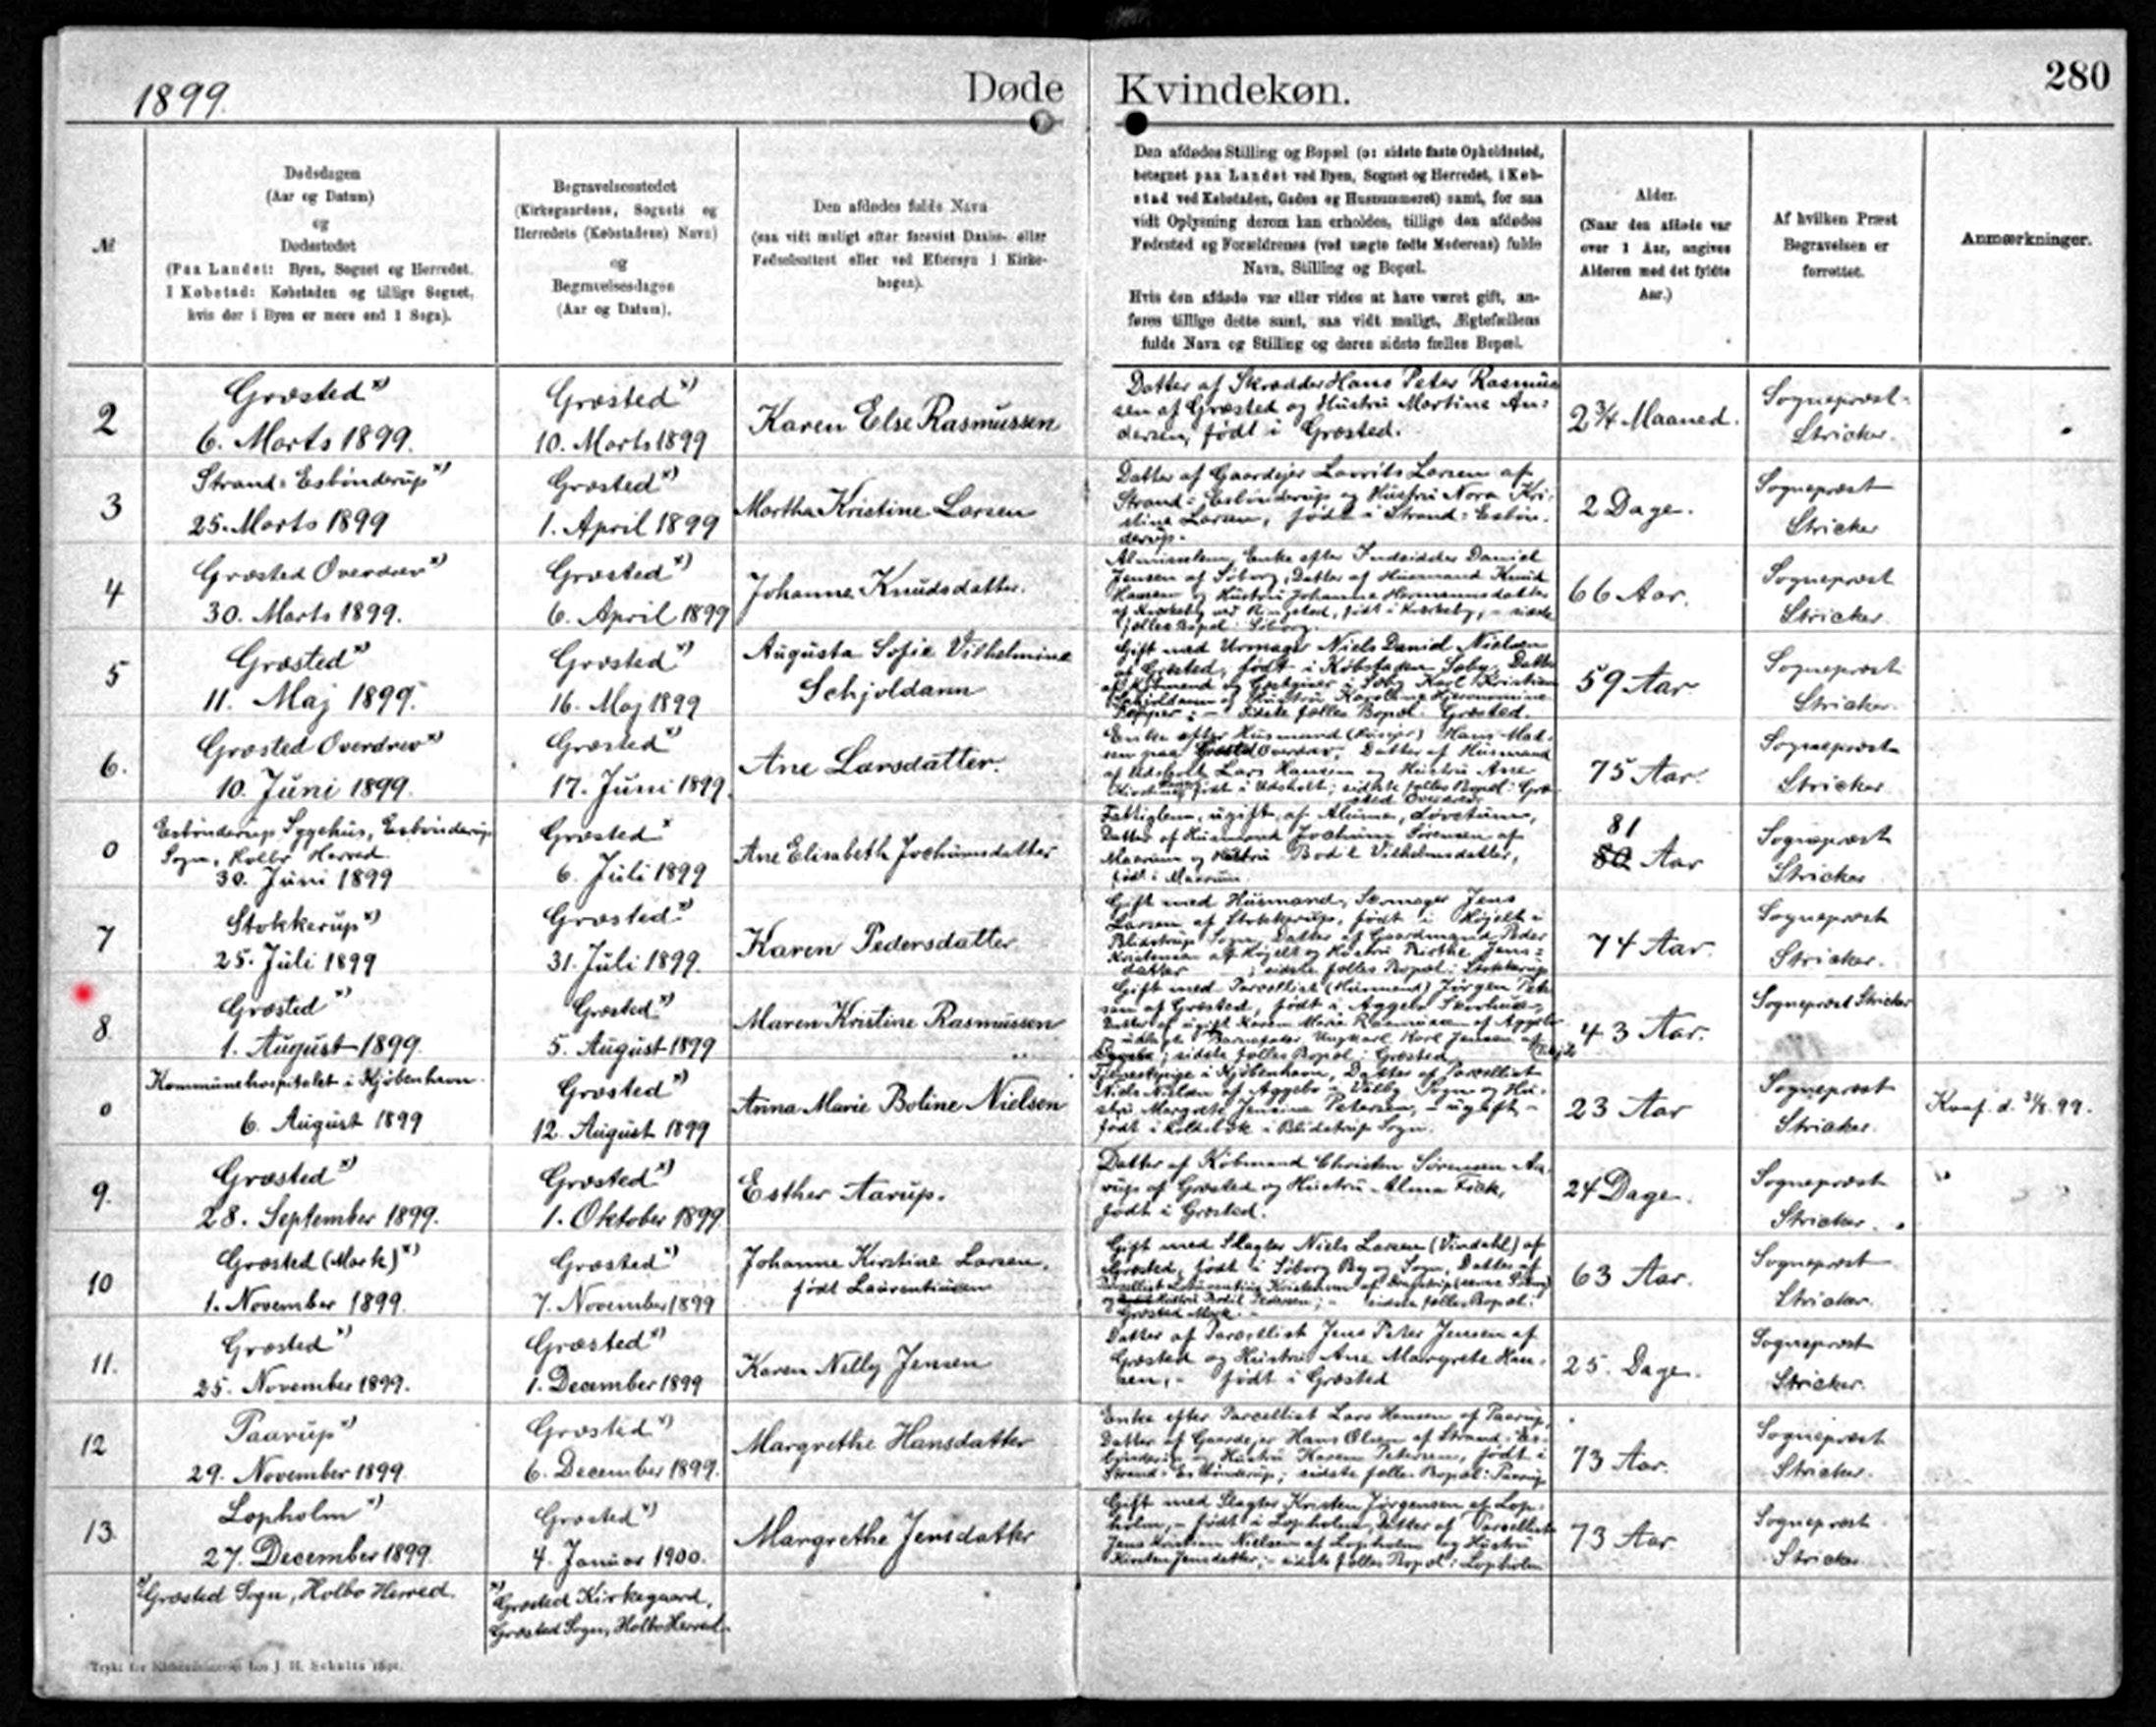 1899.
Døde
Kvindekøn.
280
№
Dødsdagen
(Aar og Datum)
og
Dødsstedet
(Paa Landet: Byen, Sognet og Herredet.
I Købstad: Købstaden og tillige Sognet,
hvis der i Byen er mere end 1 Sogn).
Begravelsesstedet
(Kirkegaardens, Sognets og
Herredets (Købstadens) Navn)
og
Begravelsesdagen
(Aar og Datum).
Den afdødes fulde Navn
(saa vidt muligt efter forevist Daabs- eller
Fødselsattest eller ved Eftersyn i Kirke-
bogen).
Den afdødes Stilling og Bopæl (o: sidste faste Opholdssted,
betegnet paa Landet ved Byen, Sognet og Herredet, i Køb-
stad ved Købstaden, Gaden og Husnummeret) samt, for saa
vidt Oplysning derom kan erholdes, tillige den afdødes
Fødested og Forældrenes (ved uægte fødte Moderens) fulde
Navn, Stilling og Bopæl.
Hvis den afdøde var eller vides at have været gift, an-
føres tillige dette samt, saa vidt muligt, Ægtefællens
fulde Navn og Stilling og deres sidste fælles Bopæl.
Alder.
(Naar den afdøde var
over 1 Aar, angives
Alderen med det fyldte
Aar.)
Af hvilken Præst
Begravelsen er
forrettet.
Anmærkninger.
2
Græsted x)
6. Marts 1899.
Græsted x)
10. Marts 1899
Karen Else Rasmussen
Datter af Skrædder Hans Peter Rasmus
sen af Græsted og Hustru Martine An:
dersen, født i Græsted.
2 3/4 Maaned.
Sognepræst
Stricker.
3
Strand-Esbønderup x)
25. Marts 1899
Græsted x)
1. April 1899
Martha Kristine Larsen
Datter af Gaardejer Laurits Larsen af
Strand-Esbønderup og Hustru Nora Kri:
stine Larsen, født i Strand-Esbøn-
derup.
2 Dage.
Sognepræst
Stricker
4
Græsted Overdrev x)
30. Marts 1899.
Græsted x)
6. April 1899
Johanne Knudsdatter.
Almisselem, Enke efter Indsidder Daniel
Jensen af Søborg, Datter af Husmand Knud
Hansen og Hustru Johanne Hermannsdatter
af Kværkeby ved Ringsted, født i Kværkeby, - sidste
fælles Bopæl: Søborg.
66 Aar.
Sognepræst
Stricker.
5
Græsted x)
11. Maj 1899.
Græsted x)
16. Maj 1899
Augusta Sofie Vilhelmine
Schjoldann
Gift med Urmager Niels David Nielsen
af Græsted, født i Købstaden Sæby, Datter
af Købmand og Gæstgiver i Sæby Karl Kristian
Schjoldann og Hustru Karoline Hjeronomine
; - sidste fælles Bopæl: Græsted.
59 Aar
Sognepræst
Stricker.
6.
Græsted Overdrev x)
10. Juni 1899.
Græsted x)
17. Juni 1899.
Ane Larsdatter.
Enke efter Husmand Hans Mad-
sen paa Græsted Overdrev, Datter af Husmand
af Udsholt Lars Hansen og Hustru Ane
født i Udsholt; sidste fælles Bopæl: Græ-
sted Overdrev.
75 Aar.
Sognepræst
Stricker.
0
Esbønderup Sygehus, Esbønderup
Sogn, Holbo Herred.
30. Juni 1899
Græsted x
6. Juli 1899
Ane Elisabeth Jochumsdatter
Fattiglem, ugift, af Alume,
Datter af Husmand Jochum Sørensen af
Maarum og Hustru Bodil Vilhelmsdatter,
født i Maarum.
81
80 Aar
Sognepræst
Stricker
7
Stokkerup x)
25. Juli 1899
Græsted x)
31. Juli 1899.
Karen Pedersdatter
Gift med Husmand, Jens
Larsen af Stokkerup, født i Højelt i
Blidstrup Sogn, Datter af Gaardmand Peder
Kristensen af Højelt og Hustru Birthe Jens-
datter; sidste fælles Bopæl: Stokkerup
74 Aar.
Sognepræst
Stricker.
8.
Græsted x)
1. August 1899.
Græsted x)
5. August 1899
Maren Kristine Rasmussen
Gift med Parcellist (Husmand) Jørgen Peter-
sen af Græsted, født i Aggebo
Datter af ugift Karen Marie Rasmussen af Aggebo
udlagt Barnefader, Ungkarl Karl Jensen af
; sidste fælles Bopæl: Græsted
43 Aar.
Sognepræst Stricker
0
Kommunehospitalet i Kjøbenhavn.
6. August 1899
Græsted x)
12. August 1899
Anna Marie Boline Nielsen
Tjenestepige i Kjøbenhavn, Datter af Parcellist
Niels Nielsen af Aggebo i Valby Sogn og Hu-
stru Margrete Jensine Petersen, - ugift -
født i Holdebæk i Blidstrup Sogn.
23 Aar
Sognepræst
Stricker.
Konf. d. 31/8. 99.
9.
Græsted x)
28. September 1899.
Græsted x)
1. Oktober 1899
Esther Aarup.
Datter af Købmand Christen Sørensen Aa-
rup af Græsted og Hustru Alma Fick,
født i Græsted.
24 Dage.
Sognepræst
Stricker.
10
Græsted (Mark) x)
1. November 1899.
Græsted x)
7. November 1899
Johanne Kirstine Larsen,
født Laurentiussen
Gift med Slagter Niels Larsen (Vindahl) af
Græsted, født i Søborg By og Sogn, Datter af
Parcellist Laurentius Kristensen af
og Hustru Bodil Pedersen; - sidste fælles Bopæl:
Græsted Mark.
63 Aar.
Sognepræst
Stricker.
11.
Græsted x)
25. November 1899.
Græsted x)
1. December 1899
Karen Nelly Jensen
Datter af Parcellist Jens Peter Jensen af
Græsted og Hustru Ane Margrete Han-
sen, - født i Græsted
25. Dage.
Sognepræst
Stricker.
12
Paarup x)
29. November 1899.
Græsted x)
6. December 1899.
Margrethe Hansdatter
Enke efter Parcellist Lars Hansen af Paarup,
Datter af Gaardejer Hans Olsen af Strand-Es-
bønderup og Hustru Karen Petersen, født i
Strand-Esbønderup; sidste fælles Bopæl: Paarup
73 Aar.
Sognepræst
Stricker.
13
Lopholm x)
27. December 1899.
Græsted x)
4. Januar 1900.
Margrethe Jensdatter
Gift med Slagter Kristen Jørgensen af Lop-
holm, - født i Lopholm, Datter af Parcellist
Jens Kristian Nielsen af Lopholm og Hustru
Kirsten Jensdatter, - sidste fælles Bopæl: Lopholm
73 Aar
Sognepræst
Stricker.
x) Græsted Sogn, Holbo Herred.
x) Græsted Kirkegaard,
Græsted Sogn, Holbo Herred.
Trykt for Kirkeministeriet hos J. H. Schultz 1891.